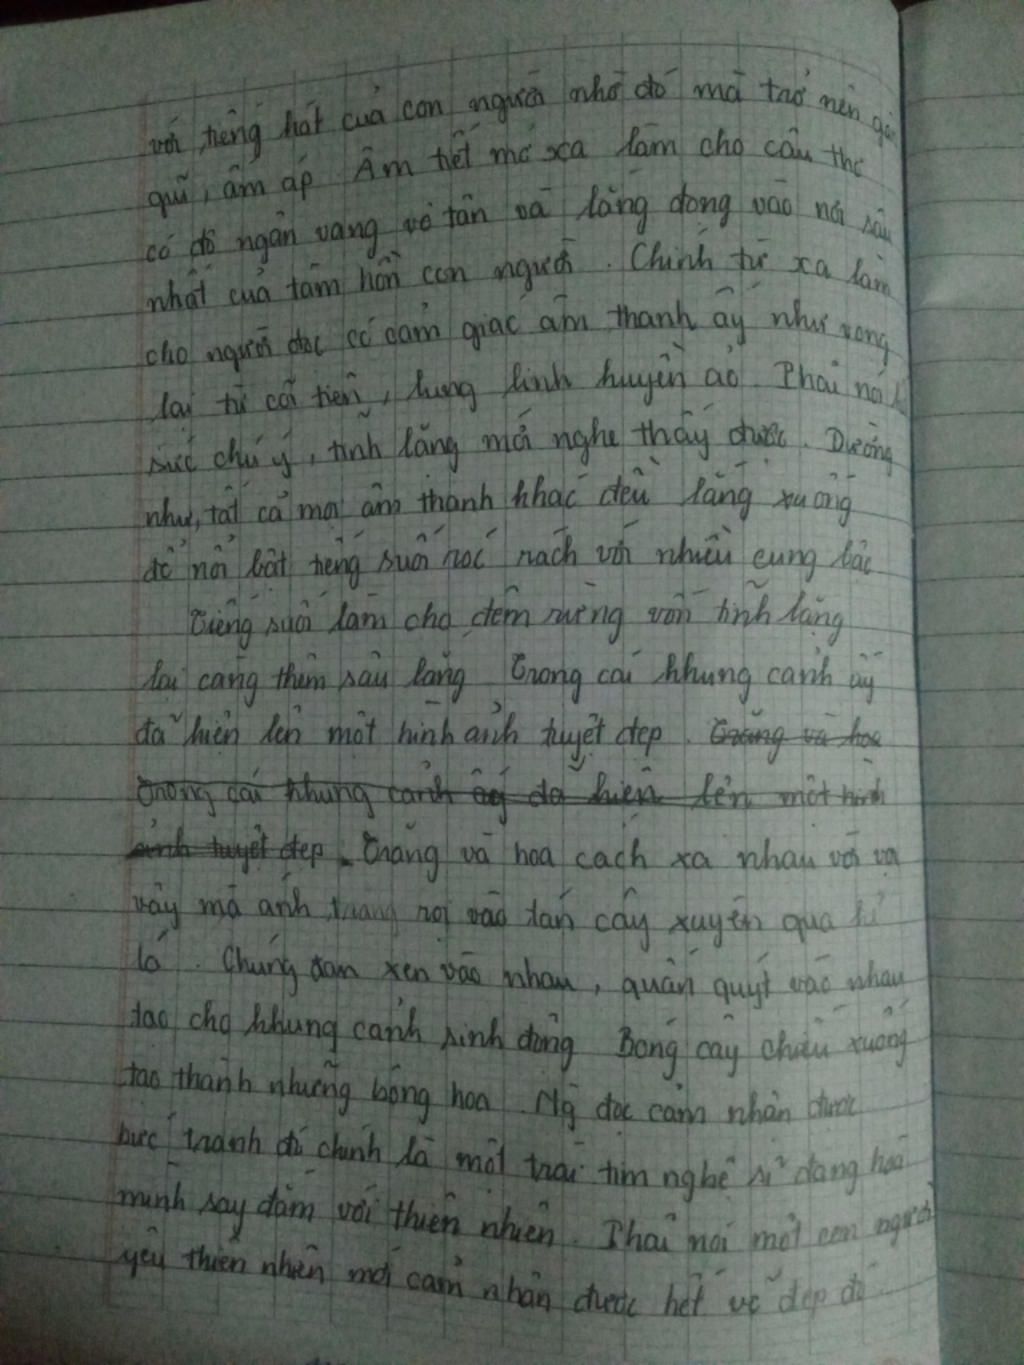 với tiếng hát của con người nhờ đó mà trở nên gần
quĩ, ấm áp. Âm tiết mở xa làm cho câu thơ
có độ ngân vang vô tận và lắng đọng vào nơi sâu
nhất của tâm hồn con người. Chính từ xa làm
cho người đọc có cảm giác âm thanh ấy như vọng
lại từ cõi tiên, lung linh huyền ảo. Phải nói
sức chú ý, tĩnh lặng mới nghe thấy được. Dường
như, tất cả mọi âm thanh khác đều lắng xuống
để nổi bật tiếng suối róc rách với nhiều cung bậc
Tiếng suối làm cho đêm rừng vốn tĩnh lặng
lại càng thêm sâu lắng. Trong cái khung cảnh ấy
đã hiện lên một hình ảnh tuyệt đẹp. Trăng và hoa
Trong cái khung cảnh ấy đã hiện lên một hình
ảnh tuyệt đẹp. Trăng và hoa cách xa nhau vời vợi
vậy mà ánh trăng rọi vào tán cây xuyên qua
lá. Chúng đan xen vào nhau, quấn quýt vào nhau
tạo cho khung cảnh sinh động. Bóng cây chiếu xuống
tạo thành những bông hoa. Ng đọc cảm nhận được
bức tranh đó chính là một trái tim nghệ sĩ đang hoà
mình say đắm với thiên nhiên. Phải nói một con người
yêu thiên nhiên mới cảm nhận được hết vẻ đẹp đó